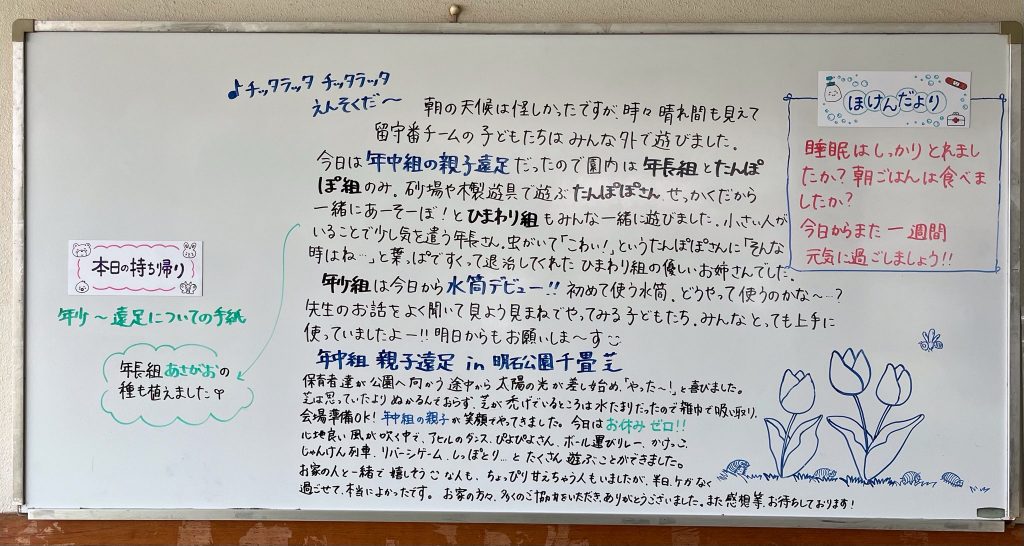 ♪チックラック チックラック
えんそくだ〜
朝の天候は怪しかったですが、時々晴れ間も見えて
留守番チームの子どもたちはみんな外で遊びました。
今日は年中組の親子遠足だったので園内は年長組とたんぽ
ぽ組のみ。砂場や木製遊具で遊ぶたんぽぽさん、せっかくだから
一緒にあーそーぼ!とひまわり組もみんな一緒に遊びました。小さい人が
いることで少し気を遣う年長さん。虫がいて「こわい!」というたんぽぽさんに「そんな
時はね…」と葉っぱですくって退治してくれたひまわり組の優しいお姉さんでした。
年少組は今日から水筒デビュー!! 初めて使う水筒、どうやって使うのかな〜…?
先生のお話をよく聞いて見よう見まねでやってみる子どもたち。みんなとっても上手に
使っていましたよー!! 明日からもお願いしま〜す
年中組 親子遠足 in 明石公園千畳芝
保育者達が公園へ向かう途中から太陽の光が差し始め、「やった〜!」と喜びました。
芝は思っていたよりぬかるんでおらず、芝が禿げているところは水たまりだったので雑巾で吸い取り、
会場準備OK! 年中組の親子が笑顔でやってきました。今日はお休みゼロ!!
心地良い風が吹く中で、アヒルのダンス、ぴよぴよさん、ボール運びリレー、かけっこ、
じゃんけん列車、リバーシゲーム、しっぽとり…とたくさん遊ぶことができました。
お家の人と一緒で嬉しそうな人も、ちょっぴり甘えちゃう人もいましたが、半日、ケガなく
過ごせて、本当によかったです。お家の方々、多くのご協力をいただき、ありがとうございました。また感想等、お待ちしております!
ほけんだより
睡眠はしっかりとれまし
たか?朝ごはんは食べま
したか?
今日からまた一週間
元気に過ごしましょう!!
本日の持ち帰り
年少〜遠足についての手紙
年長組あさがおの
種も植えました